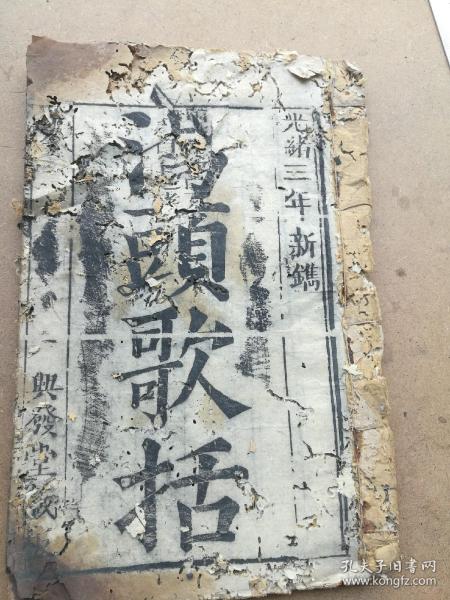 光緒三年新鐫
湯頭歌括
興發堂
孔夫子旧书网
www.kongfz.com